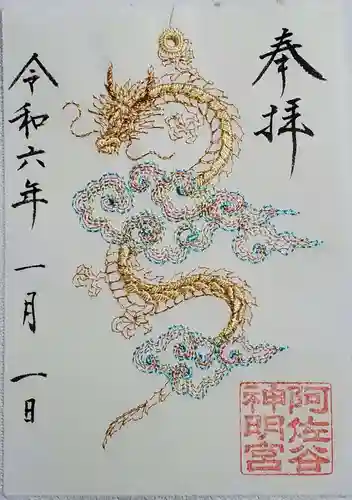 奉拝
阿佐谷
神明宮
令和六年一月一日